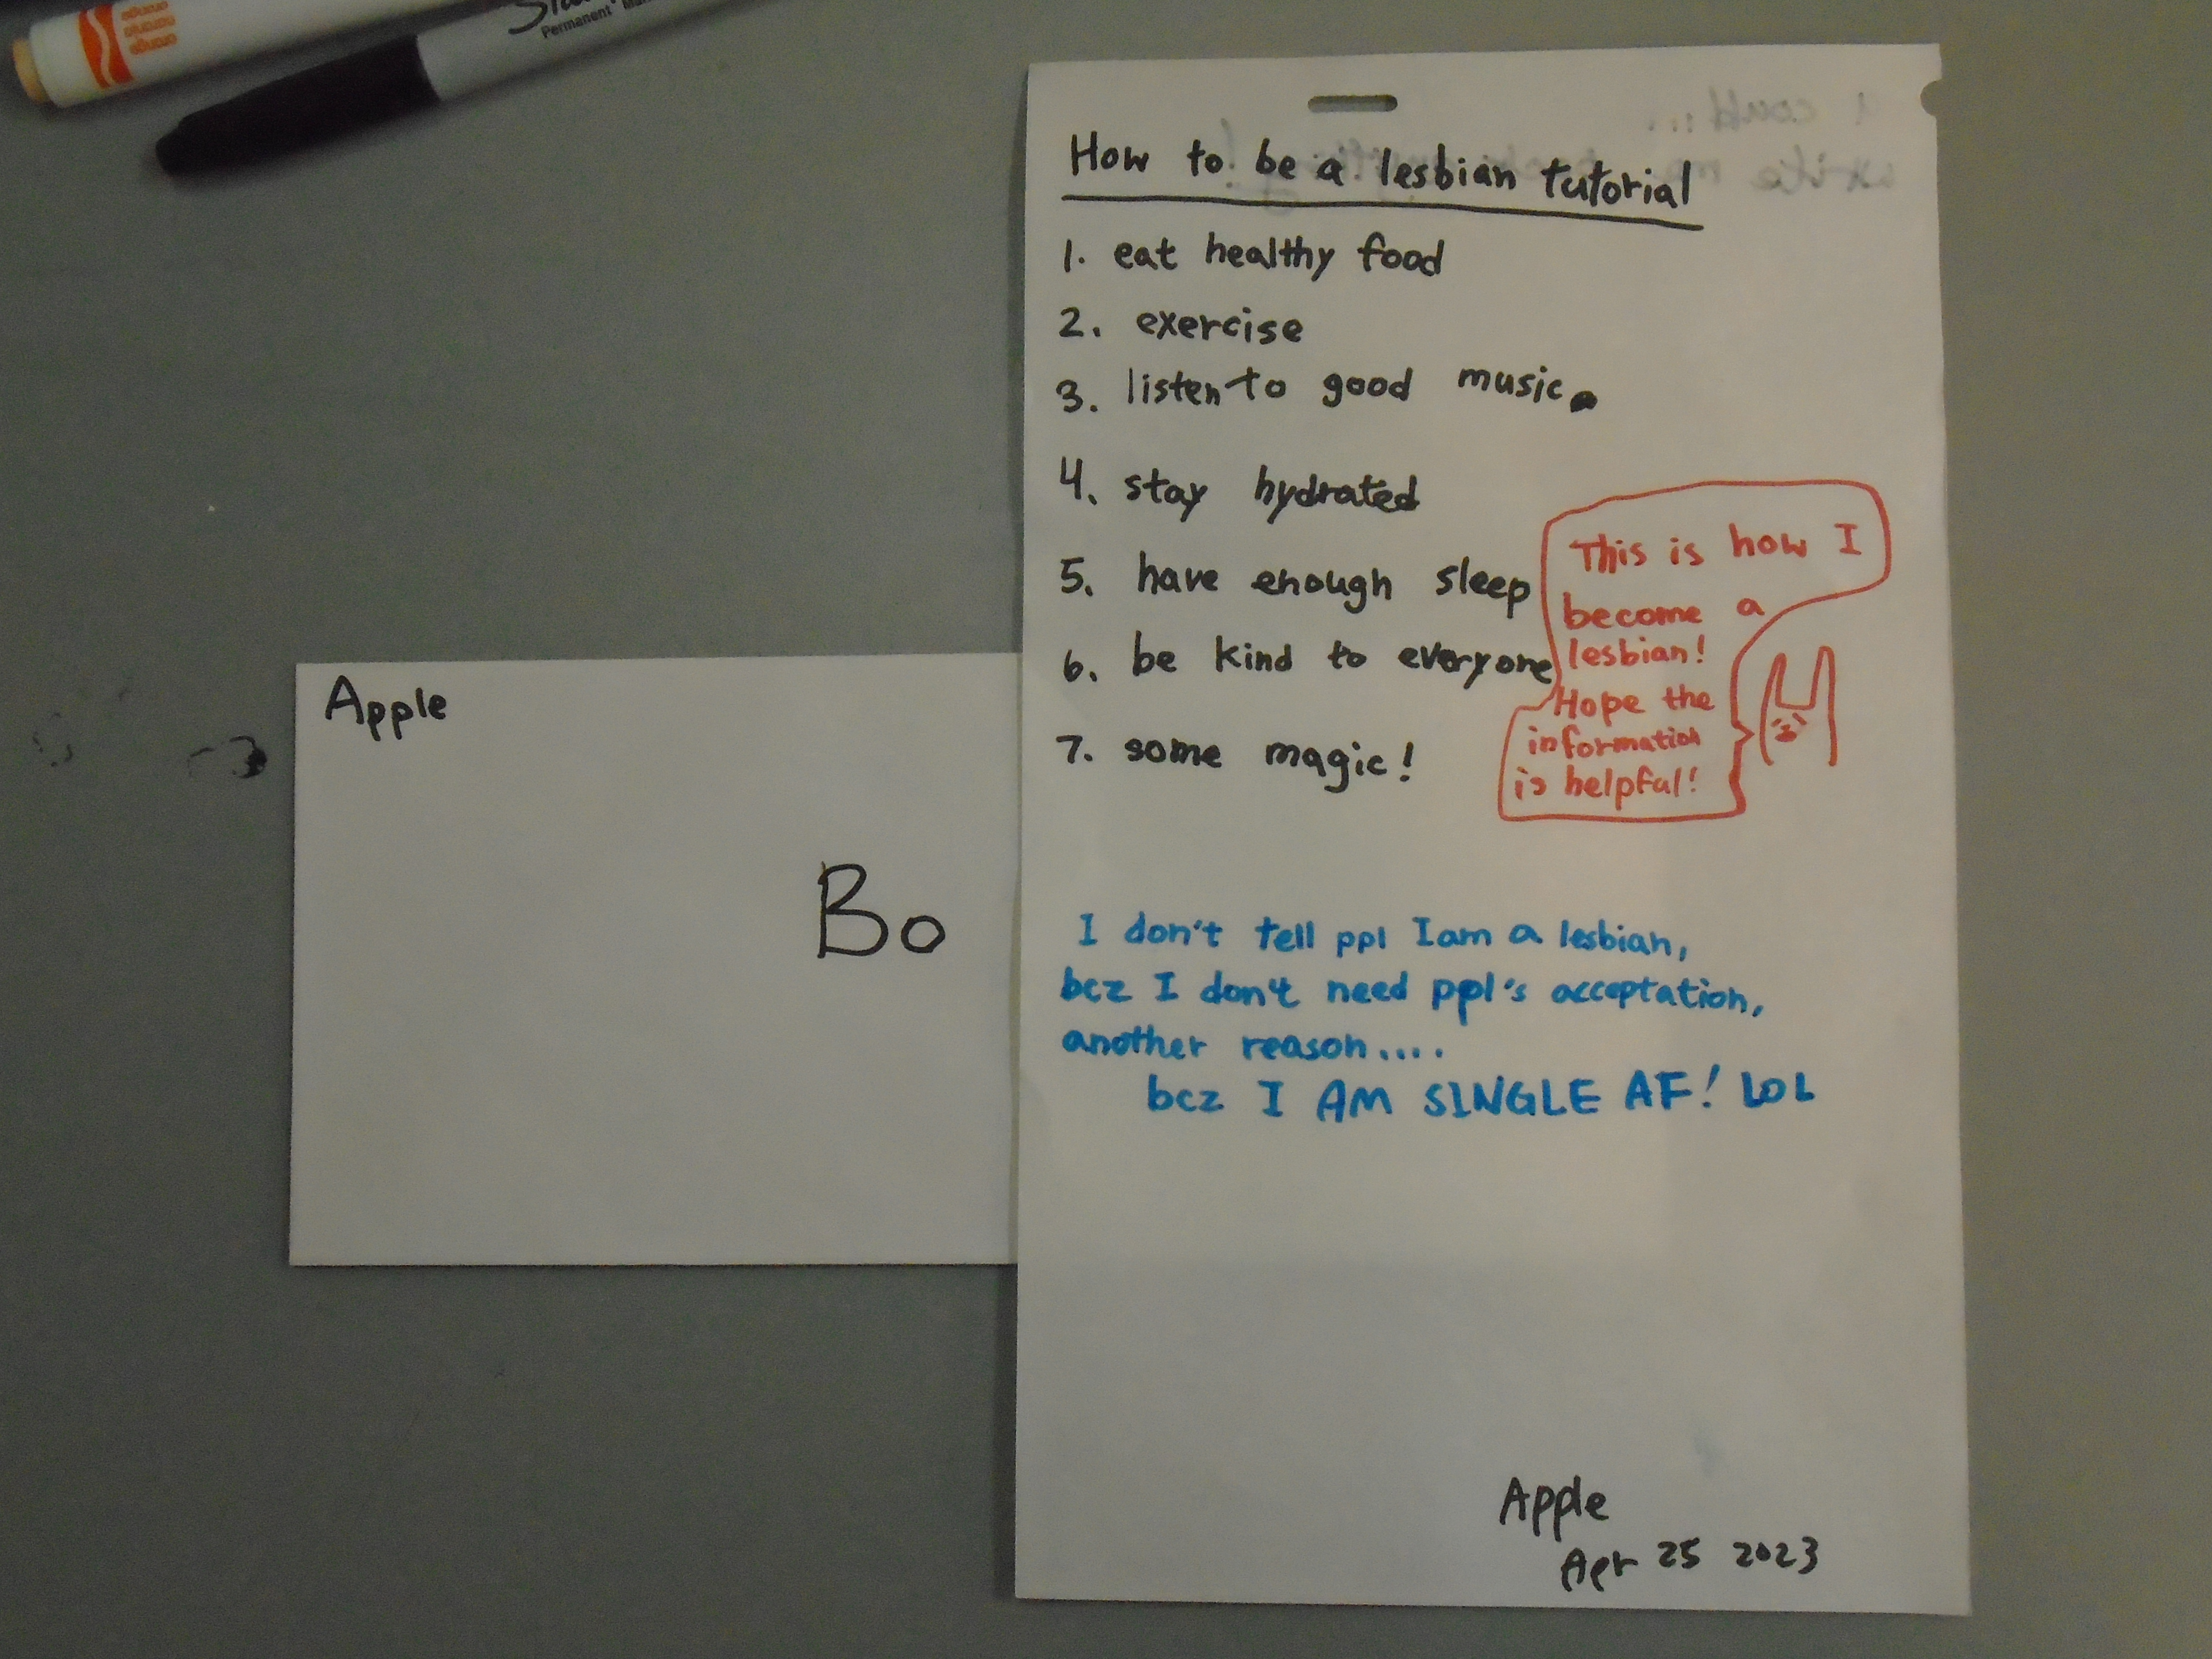 orange
naranja
orange
Permanent
How to be a lesbian tutorial
1. eat healthy food
2. exercise
3. listen to good music.
4. stay hydrated
5. have enough sleep
6. be kind to everyone
7. some magic!
This is how I
become a
lesbian!
Hope the
information
is helpful!
I don't tell ppl I am a lesbian,
bcz I don't need ppl's acceptation,
another reason....
bcz I AM SINGLE AF! LOL
Apple
Apr 25 2023
Apple
Bo